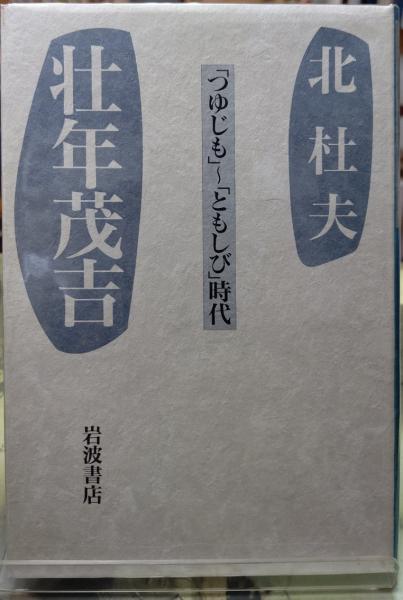 北杜夫
「つゆじも」~「ともしび」時代
壮年茂吉
岩波書店